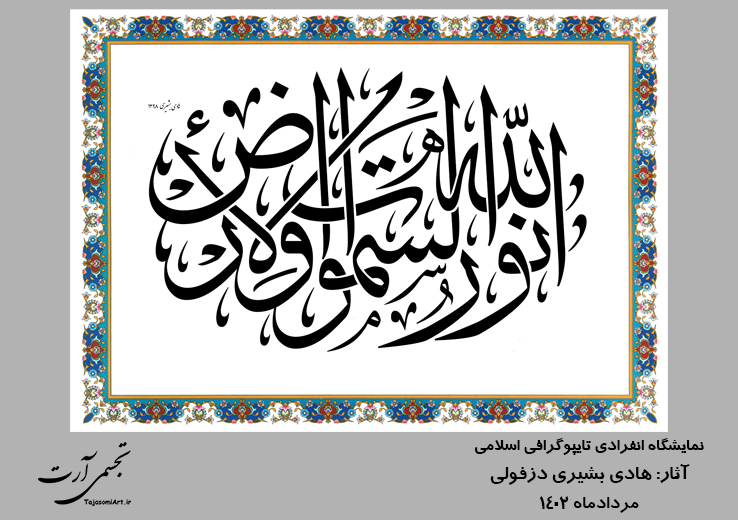 الله نور السموات والارض
هادی بشیری ۱۳۹۸
نمایشگاه انفرادی تایپوگرافی اسلامی
آثار: هادی بشیری دزفولی
مردادماه ۱۴۰۲
تجسمی آرت
TajasomiArt.ir